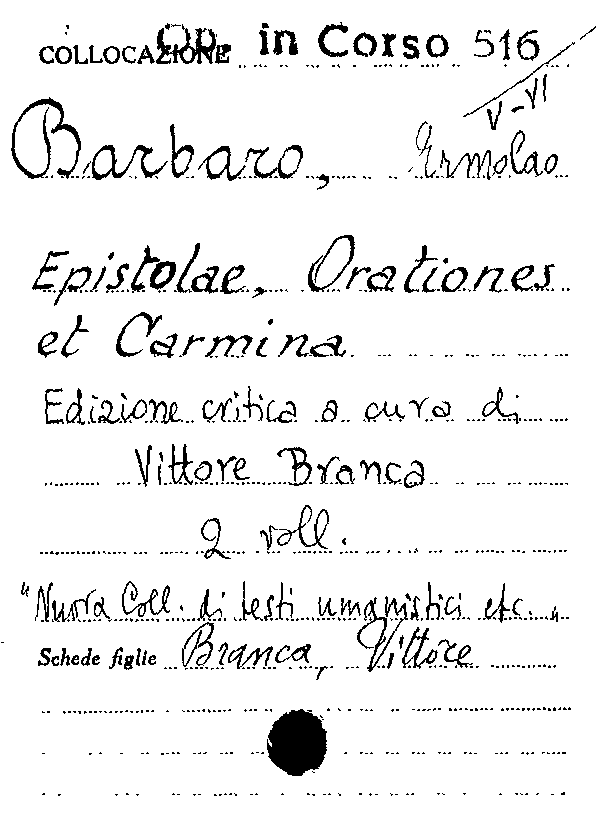 COLLOCAZIONE Op. in Corso 516
V-VI
Barbaro, Ermolao
Epistolae, Orationes
et Carmina
Edizione critica a cura di
Vittore Branca
2 voll.
"Nuova Coll. di testi umanistici etc."
Schede figlie Branca, Vittore